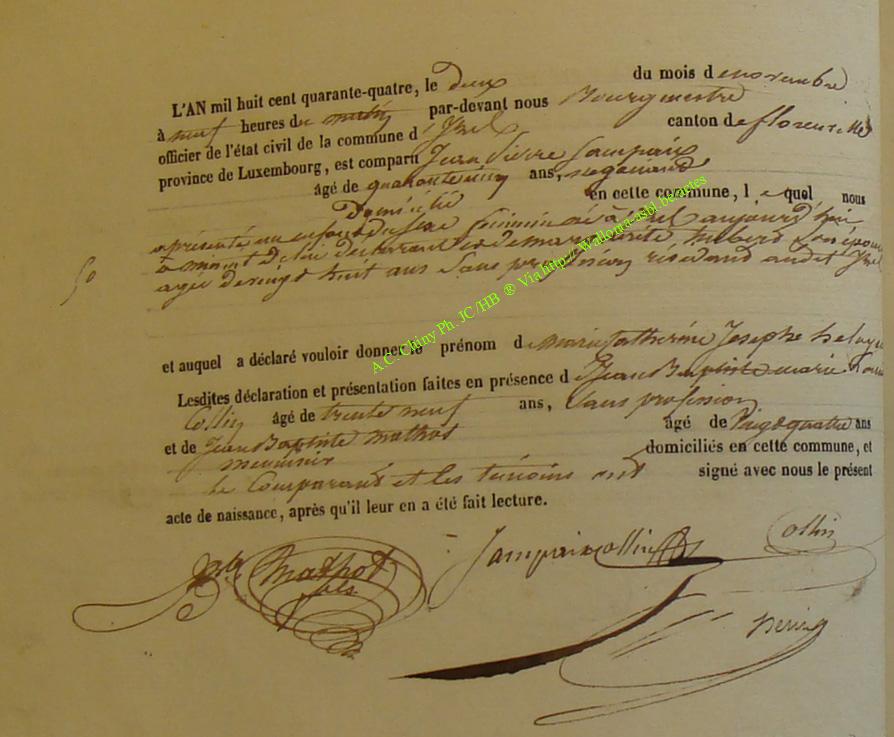 L'AN mil huit cent quarante-quatre, le deux du mois d enovembre
à neuf heures du matin par-devant nous Bourgmestre
officier de l'état civil de la commune d'Izel canton de florenville
province de Luxembourg, est comparu Jean Pierre Jampaix
âgé de quarante cinq ans, negociant
Domicilié en cette commune, l e quel nous
a présenté un enfant du sexe feminin né à Izel aujourd'hui
à minuit de lui déclarant et de marguerite hubert son épouse
agée de vingt huit ans Sans profession résidant audit Izel
50
et auquel a déclaré vouloir donner le prénom d e marie Catherine Josephe
Lesdites déclaration et présentation faites en présence de Jean Baptiste marie
Collin âgé de trente neuf ans, Sans profession
et de Jean Baptiste mathot âgé de Vingt quatre ans
menuisier domiciliés en cette commune, et
le Comparant et les témoins ont signé avec nous le présent
acte de naissance, après qu'il leur en a été fait lecture.
Mathot fils Jampaix Collin Collin
A.C. Chiny Ph. JC/HB ® Via http://Wallonia-asbl.be/actes